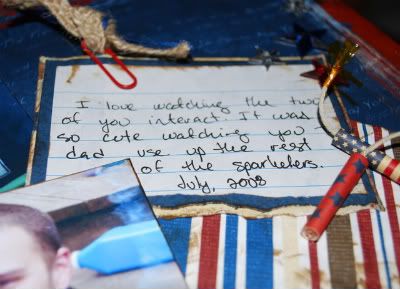 I love watching the two
of you interact. It was
so cute watching you &
dad use up the rest
of the sparklers.
July, 2008